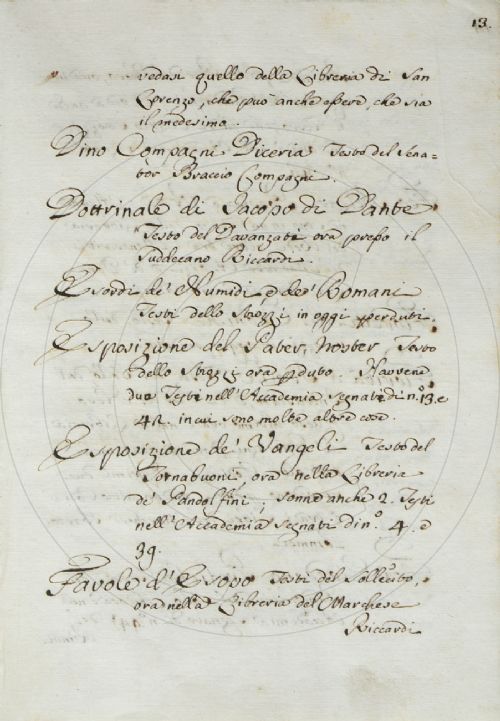 13.
vedasi quello della Libreria di San
Lorenzo, che può anche essere, che sia
il medesimo.
Dino Compagni Diceria Testo del Sena=
tor Braccio Compagni.
Dottrinale di Jacopo di Dante
Testo del Davanzati ora presso il
Suddecano Riccardi.
Esordi de' Numidi e de' Romani
Testi dello Strozzi in oggi perduti.
Esposizione del Pater Noster Testo
dello Strozzi ora perduto. Havvene
due Testi nell'Accademia segnati di n.° 13. e
42. in cui sono molte altre cose.
Esposizione de' Vangeli Testo del
Tornabuoni, ora nella Libreria
de' Pandolfini; sonne anche 2. Testi
nell'Accademia segnati di n.° 4. e
39.
Favole d'Esopo Testi del Sollecito,
ora nella Libreria del Marchese
Riccardi